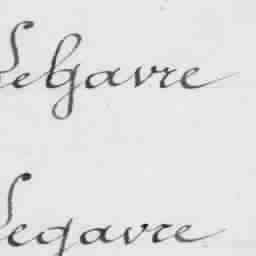 LeGavre
Legavre